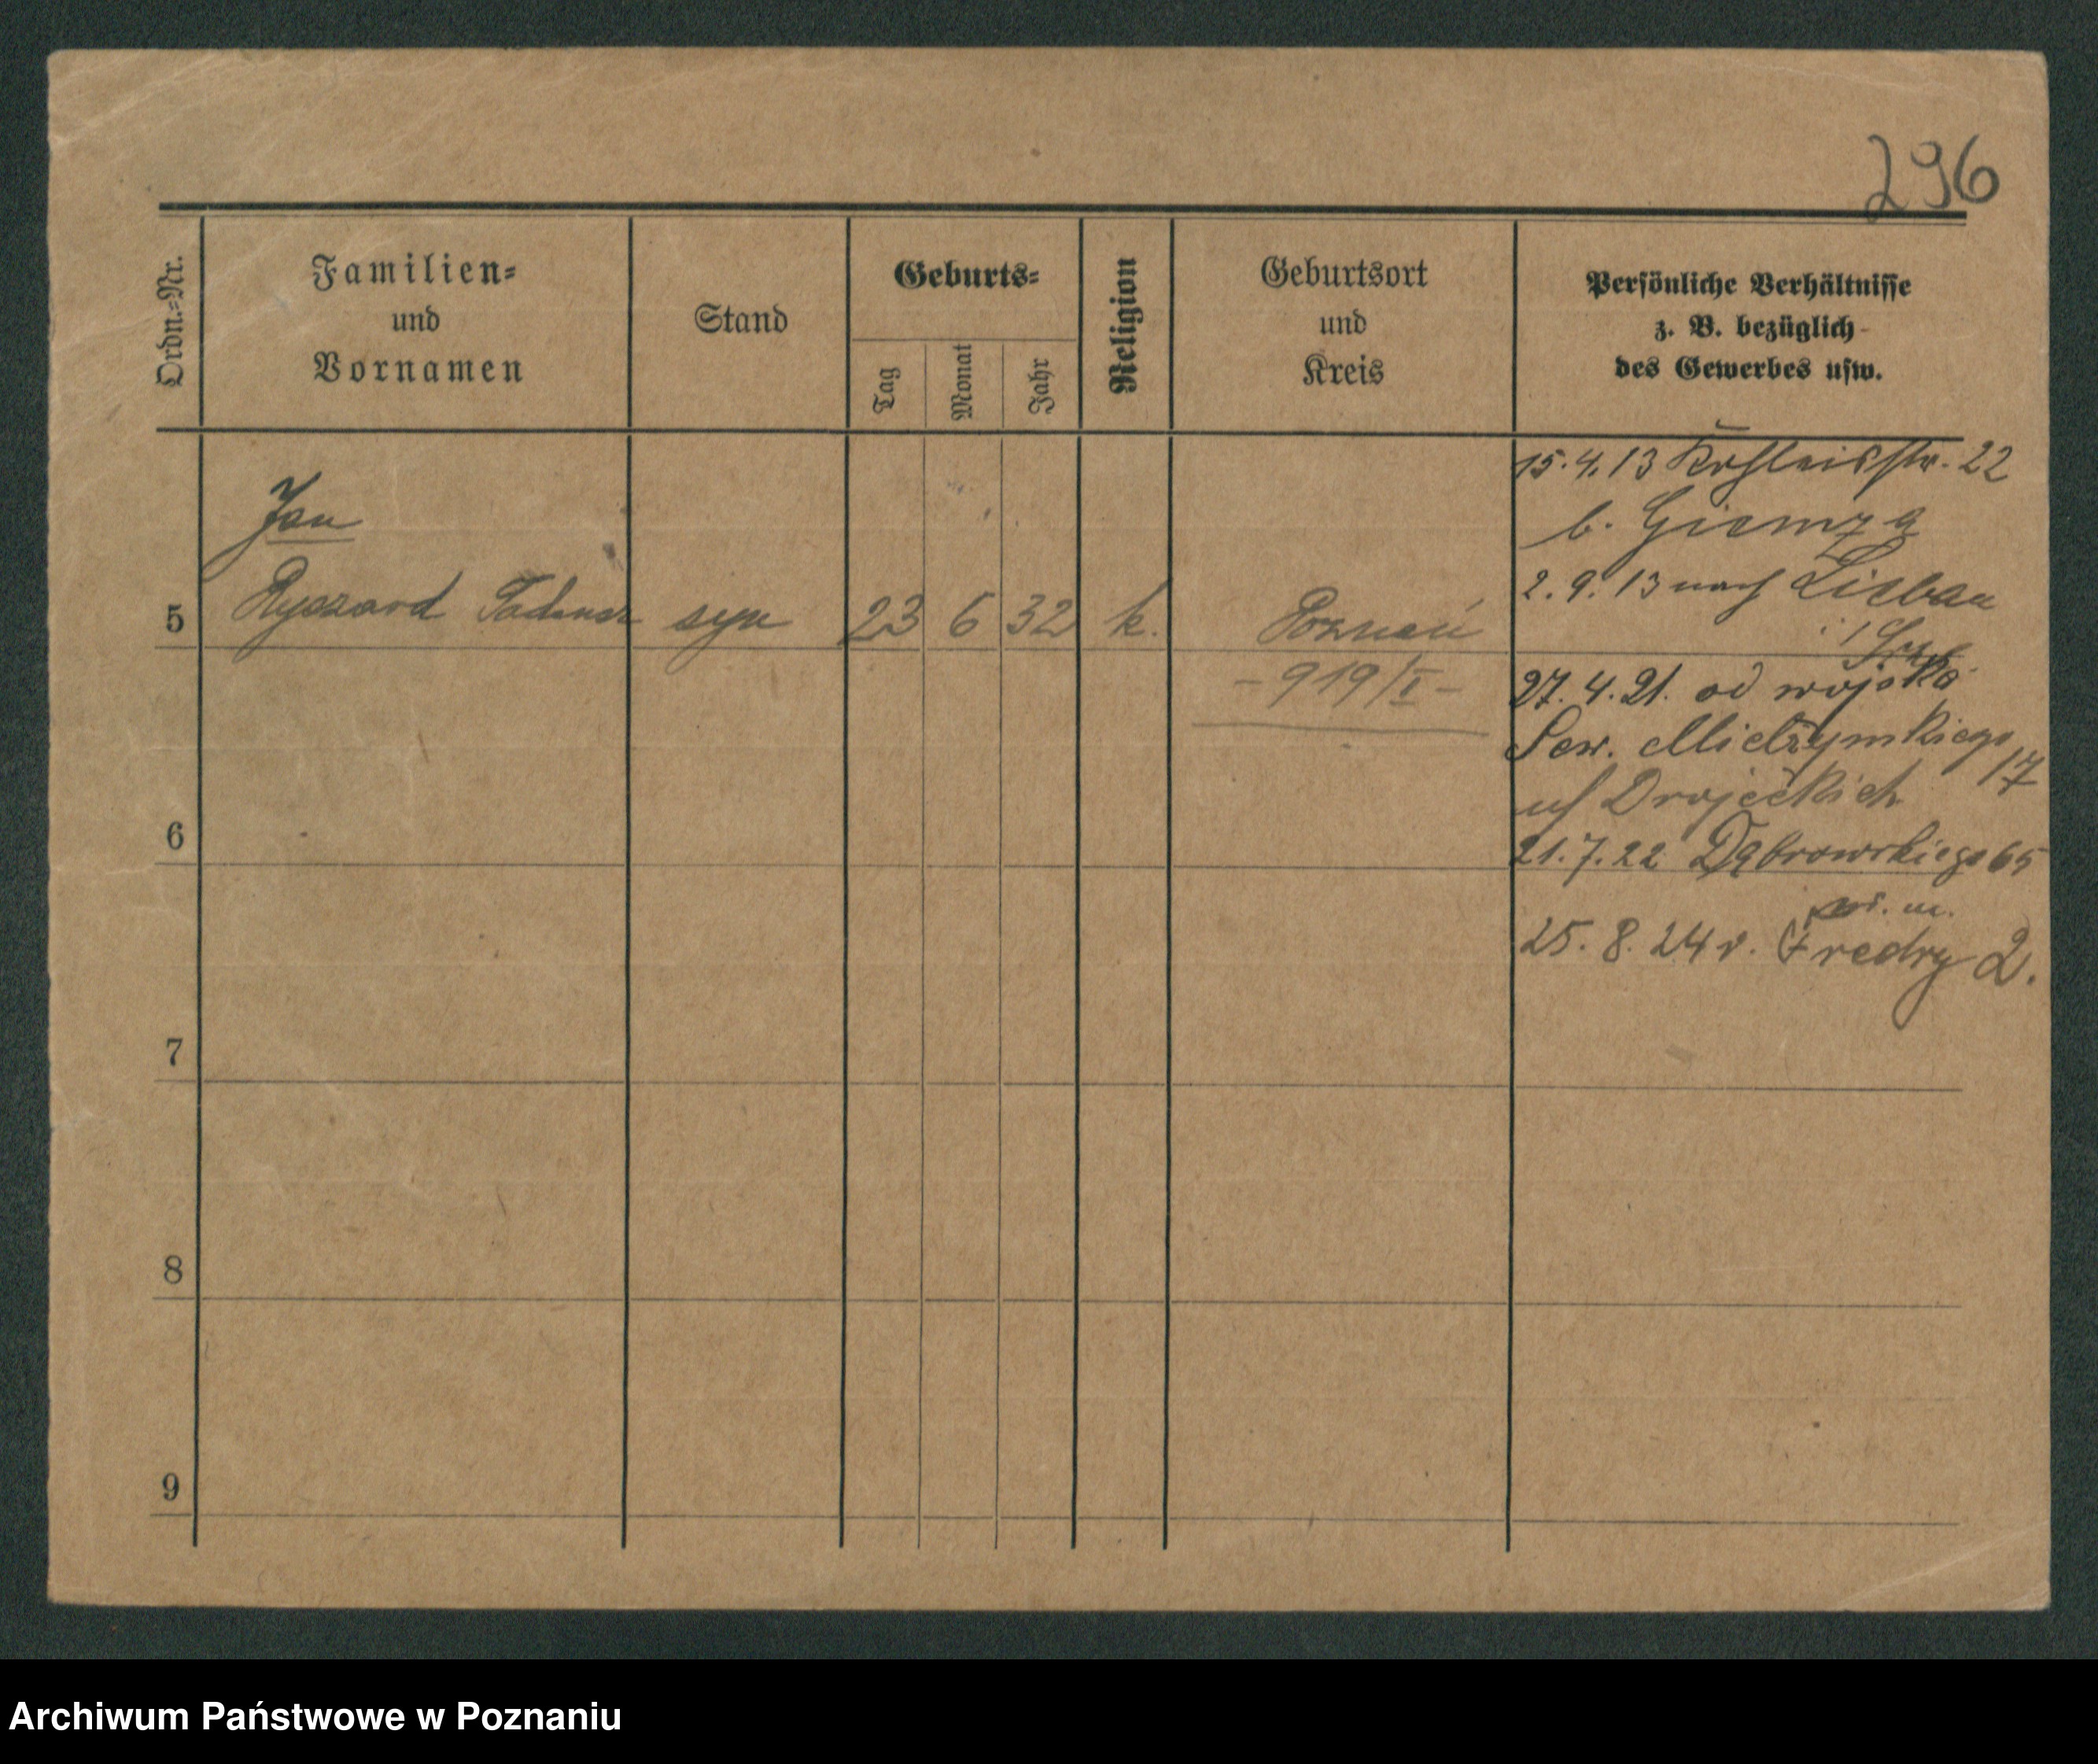 296
Ordn.=Nr.
Familien=
und
Vornamen
Stand
Geburts=
Tag
Monat
Jahr
Religion
Geburtsort
und
Kreis
Persönliche Verhältnisse
z. B. bezüglich
des Gewerbes usw.
15.4.13 22
b. Giemza
2.9.13 nach Liebau
Jan
5 Ryszard Tadeusz syn 23 6 32 k. Poznań
- 919/I -
27.4.21. od wojska
Sew. Mielżyńskiego 17
21.7.22 Dąbrowskiego 65
25.8.24 v. Fredry 2.
6
7
8
9
Archiwum Państwowe w Poznaniu